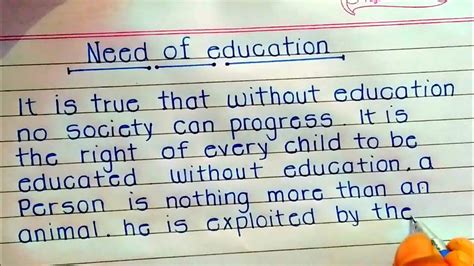 Need of education
It is true that without education
no society can progress. It is
the right of every child to be
educated without education, a
Person is nothing more than an
animal. he is exploited by the